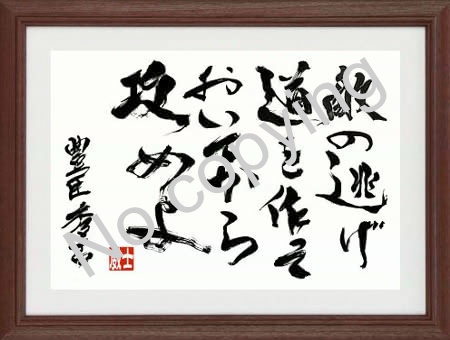 敵の逃げ
道を作って
おいてから
攻めよ
豊臣秀吉
No copying